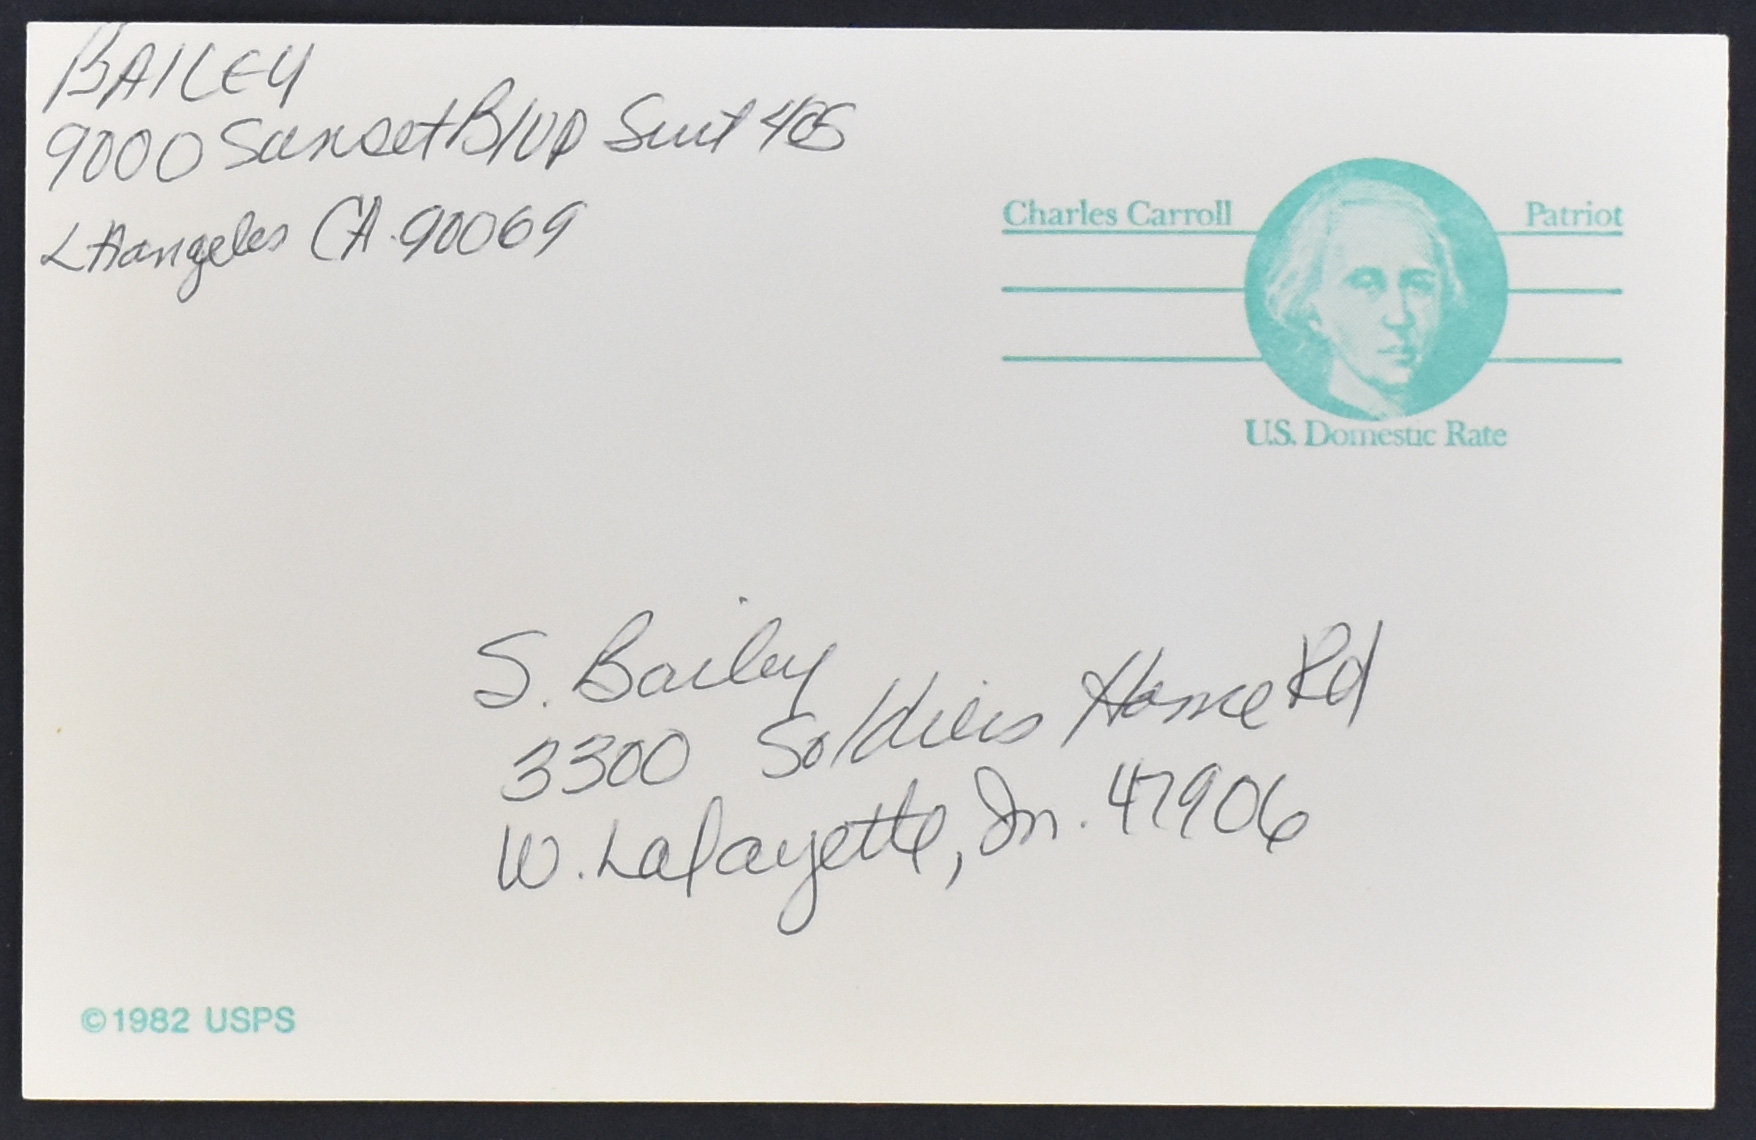 BAILEY
9000 Sunset Blvd Suit 405
LAangeles CA. 90069
Charles Carroll Patriot
U.S. Domestic Rate
S. Bailey
3300 Soldiers Home Rd
W. Lafayette, In. 47906
©1982 USPS